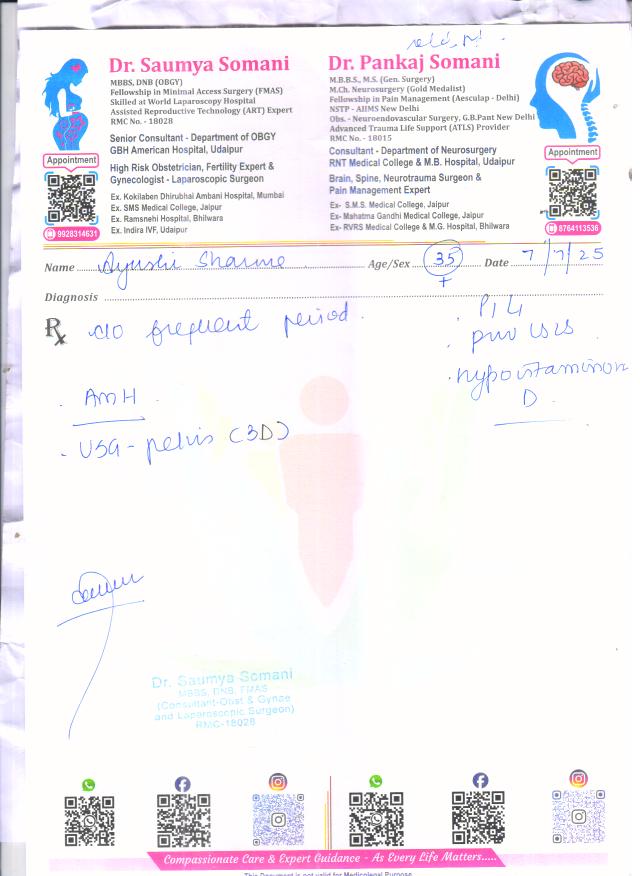 Dr. Saumya Somani
MBBS, DNB (OBGY)
Fellowship in Minimal Access Surgery (FMAS)
Skilled at World Laparoscopy Hospital
Assisted Reproductive Technology (ART) Expert
RMC No. - 18028
Senior Consultant - Department of OBGY
GBH American Hospital, Udaipur
High Risk Obstetrician, Fertility Expert &
Gynecologist - Laparoscopic Surgeon
Ex. Kokilaben Dhirubhai Ambani Hospital, Mumbai
Ex. SMS Medical College, Jaipur
Ex. Ramsnehi Hospital, Bhilwara
Ex. Indira IVF, Udaipur
Appointment
9928314631
Dr. Pankaj Somani
M.B.B.S., M.S. (Gen. Surgery)
M.Ch. Neurosurgery (Gold Medalist)
Fellowship in Pain Management (Aesculap - Delhi)
NSTP - AIIMS New Delhi
Obs. - Neuroendovascular Surgery, G.B.Pant New Delhi
Advanced Trauma Life Support (ATLS) Provider
RMC No. - 18015
Consultant - Department of Neurosurgery
RNT Medical College & M.B. Hospital, Udaipur
Brain, Spine, Neurotrauma Surgeon &
Pain Management Expert
Ex- S.M.S. Medical College, Jaipur
Ex- Mahatma Gandhi Medical College, Jaipur
Ex- RVRS Medical College & M.G. Hospital, Bhilwara
Appointment
8764113536
Name Ayushi Sharma Age/Sex 35 Date 7/7/25
Diagnosis
Rx c/o frequent period.
. P1L1
. prev LSCS
. hypovitaminosis
D
. AMH
. USG - pelvis (3D)
Dr. Saumya Somani
MBBS, DNB, FMAS
(Consultant-Obst & Gynae
and Laparoscopic Surgeon)
RMC-18028
Compassionate Care & Expert Guidance - As Every Life Matters.....
This Document is not valid for Medicolegal Purpose